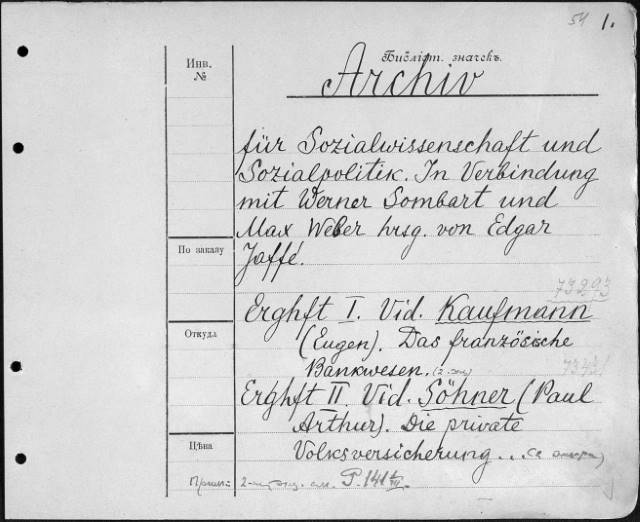 54 1.
Инв.
№
Библіот. значекъ.
Archiv
für Sozialwissenschaft und
Sozialpolitik. In Verbindung
mit Werner Sombart und
Max Weber hrsg. von Edgar
Jaffé.
По заказу
73293
Erghft I. Vid. Kaufmann
(Eugen). Das französische
Откуда
Bankwesen.
7343/
Erghft II. Vid. Söhner (Paul
Arthur). Die private
Цѣна
Volksversicherung...
P. 141